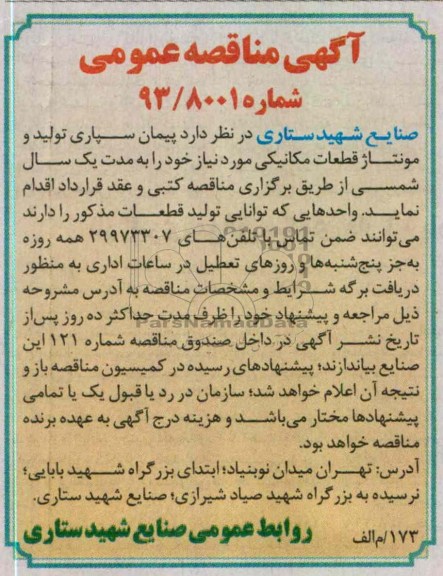 آگهی مناقصه عمومی
شماره ۹۳/۸۰۰۱
صنایع شهید ستاری در نظر دارد پیمان سپاری تولید و
مونتاژ قطعات مکانیکی مورد نیاز خود را به مدت یک سال
شمسی از طریق برگزاری مناقصه کتبی و عقد قرارداد اقدام
نماید. واحدهایی که توانایی تولید قطعات مذکور را دارند
می‌توانند ضمن تماس با تلفن‌های ۲۹۹۷۳۳۰۷ همه روزه
به‌جز پنج‌شنبه‌ها و روزهای تعطیل در ساعات اداری به منظور
دریافت برگه شرایط و مشخصات مناقصه به آدرس مشروحه
ذیل مراجعه و پیشنهاد خود را ظرف مدت حداکثر ده روز پس از
ParsNamadData
تاریخ نشر آگهی در داخل صندوق مناقصه شماره ۱۲۱ این
صنایع بیاندازند؛ پیشنهادهای رسیده در کمیسیون مناقصه باز و
نتیجه آن اعلام خواهد شد؛ سازمان در رد یا قبول یک یا تمامی
پیشنهادها مختار می‌باشد و هزینه درج آگهی به عهده برنده
مناقصه خواهد بود.
آدرس: تهران میدان نوبنیاد؛ ابتدای بزرگراه شهید بابایی؛
نرسیده به بزرگراه شهید صیاد شیرازی؛ صنایع شهید ستاری.
۱۷۳/م‌الف روابط عمومی صنایع شهید ستاری